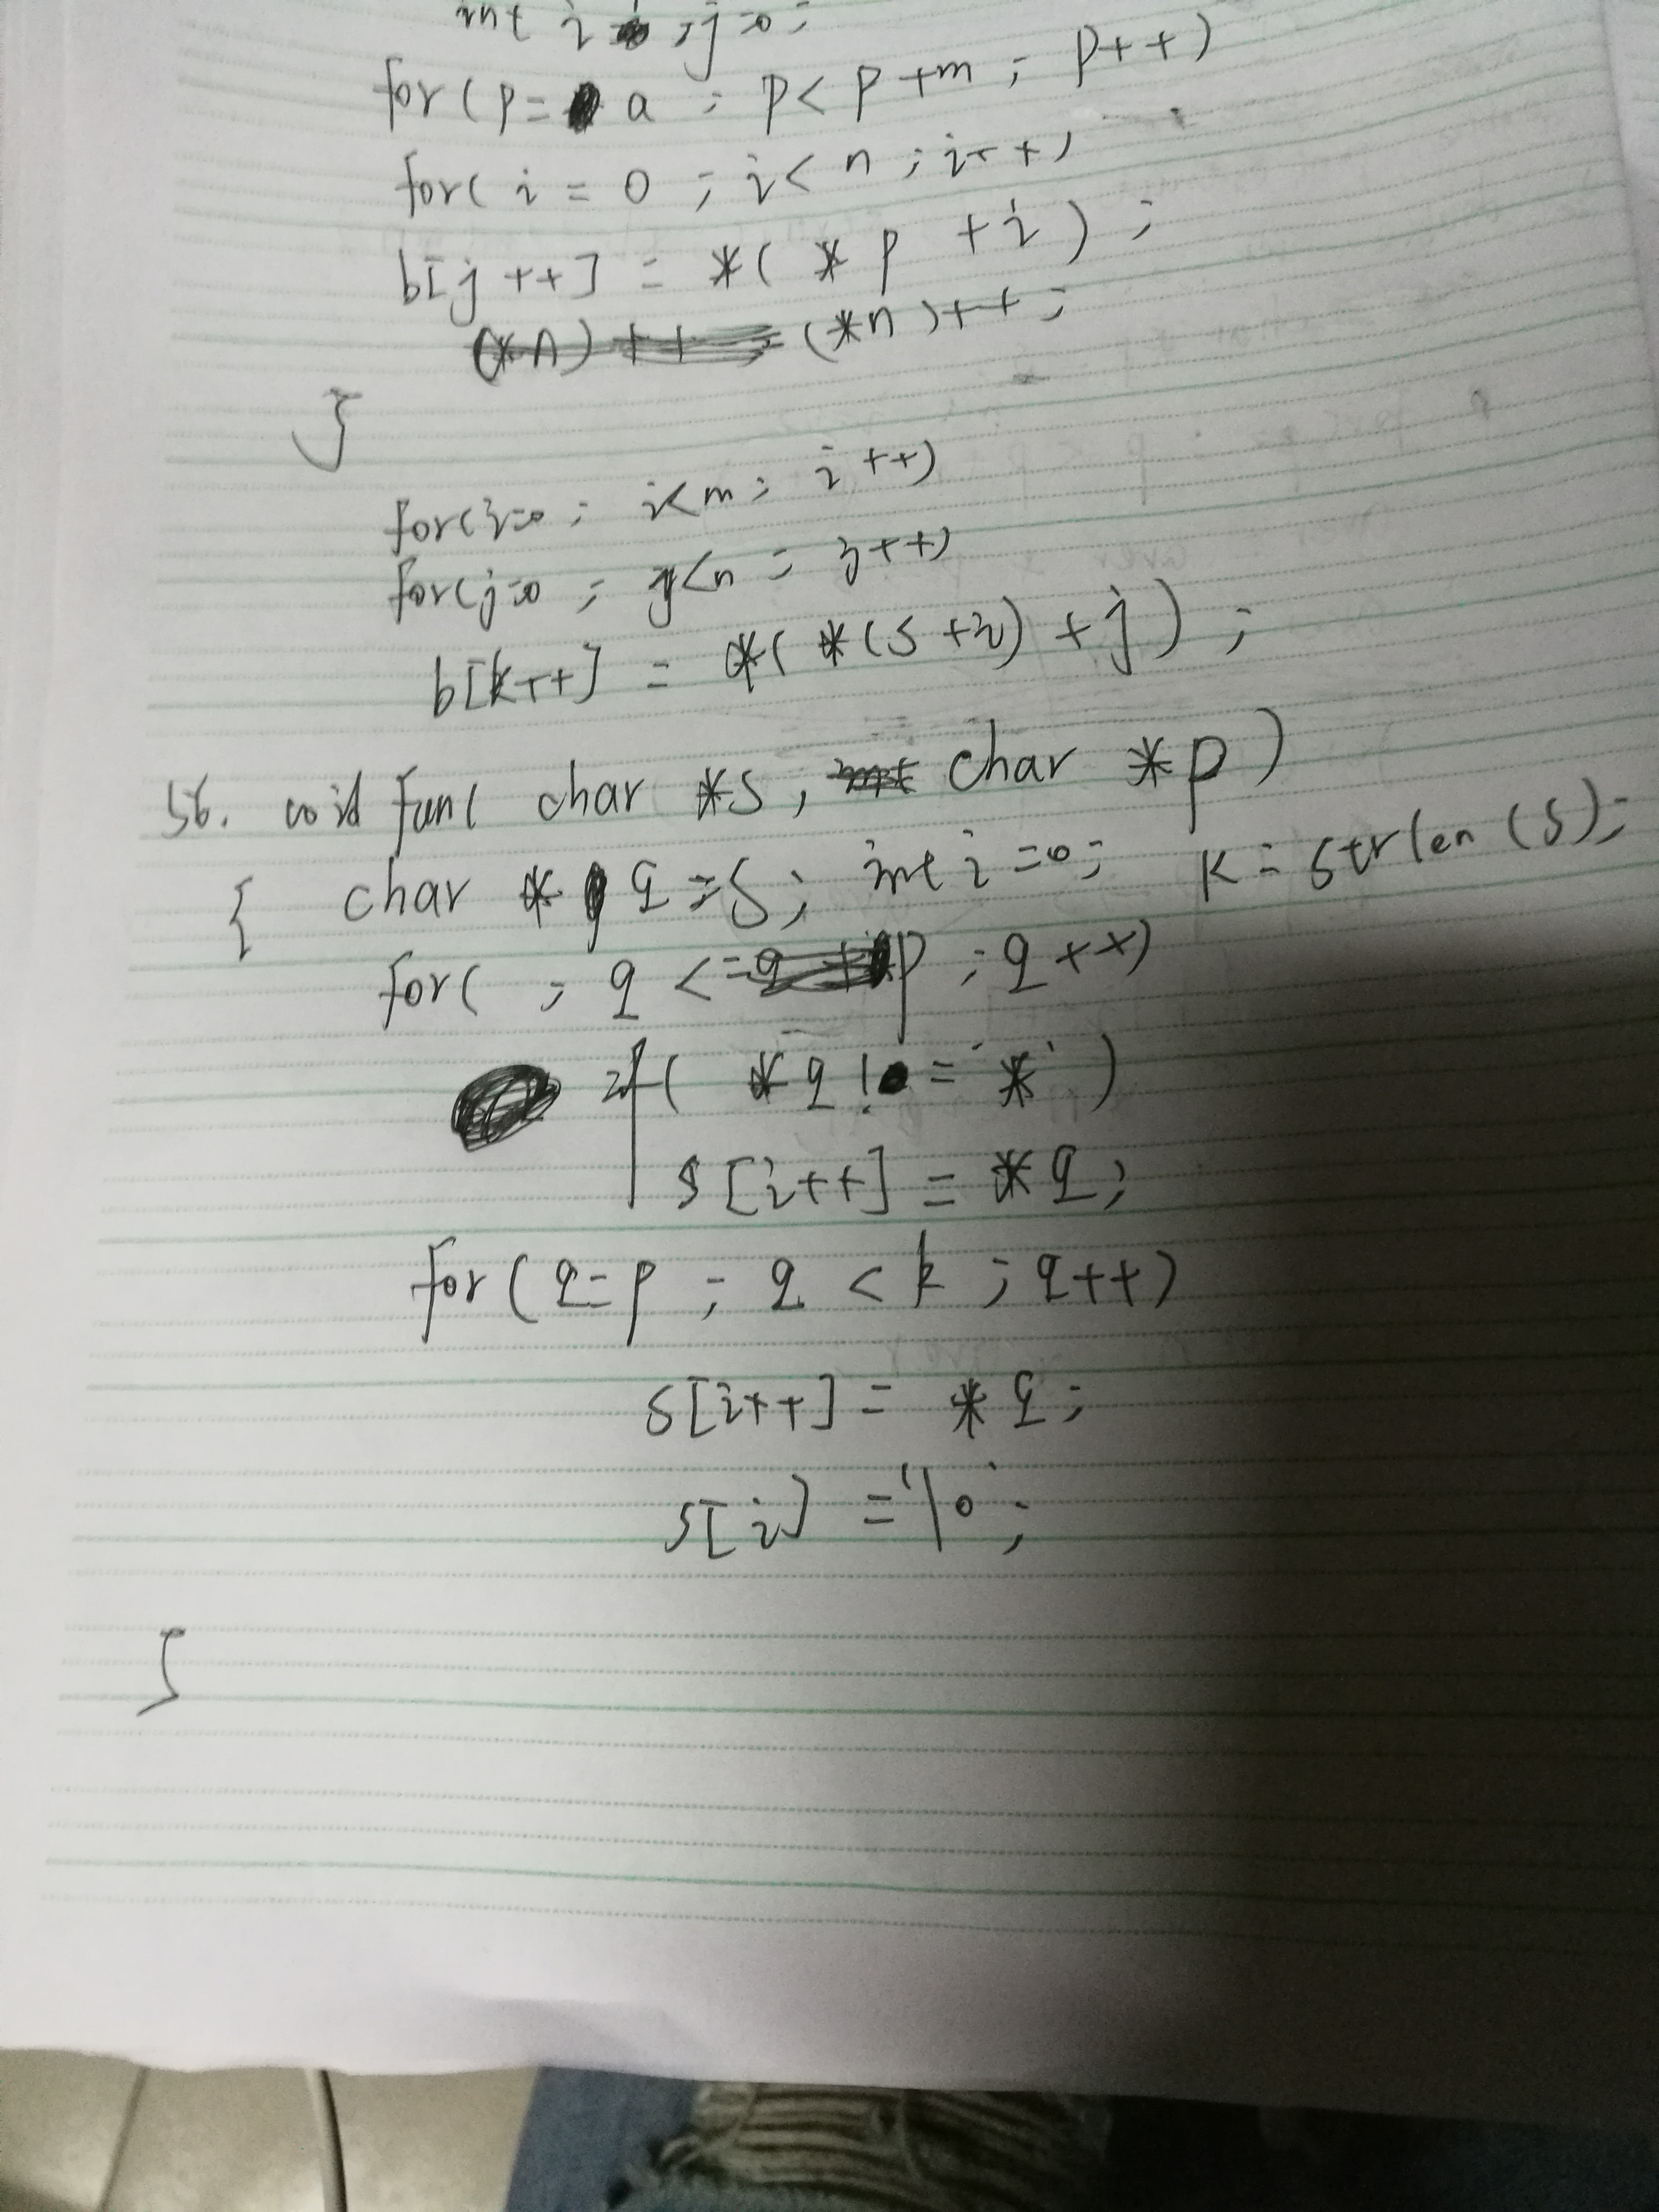 int i , j=0;
for(p= a ; p< p +m ; p++)
for( i = 0 ; i< n ; i++)
b[j++] = *( *p +i) ;
(*n)++;
}
for(i=0 ; i<m ; i++)
for(j=0 ; j<n ; j++)
b[k++] = *( *(s+i) +j) ;
56. void fun( char *s, char *p)
{ char * q =s; int i=0; k=strlen(s);
for( ; q <= p ; q++)
if( *q != '*' )
s[i++] = *q;
for(q=p ; q < k ; q++)
s[i++] = *q;
s[i] ='\0';
}